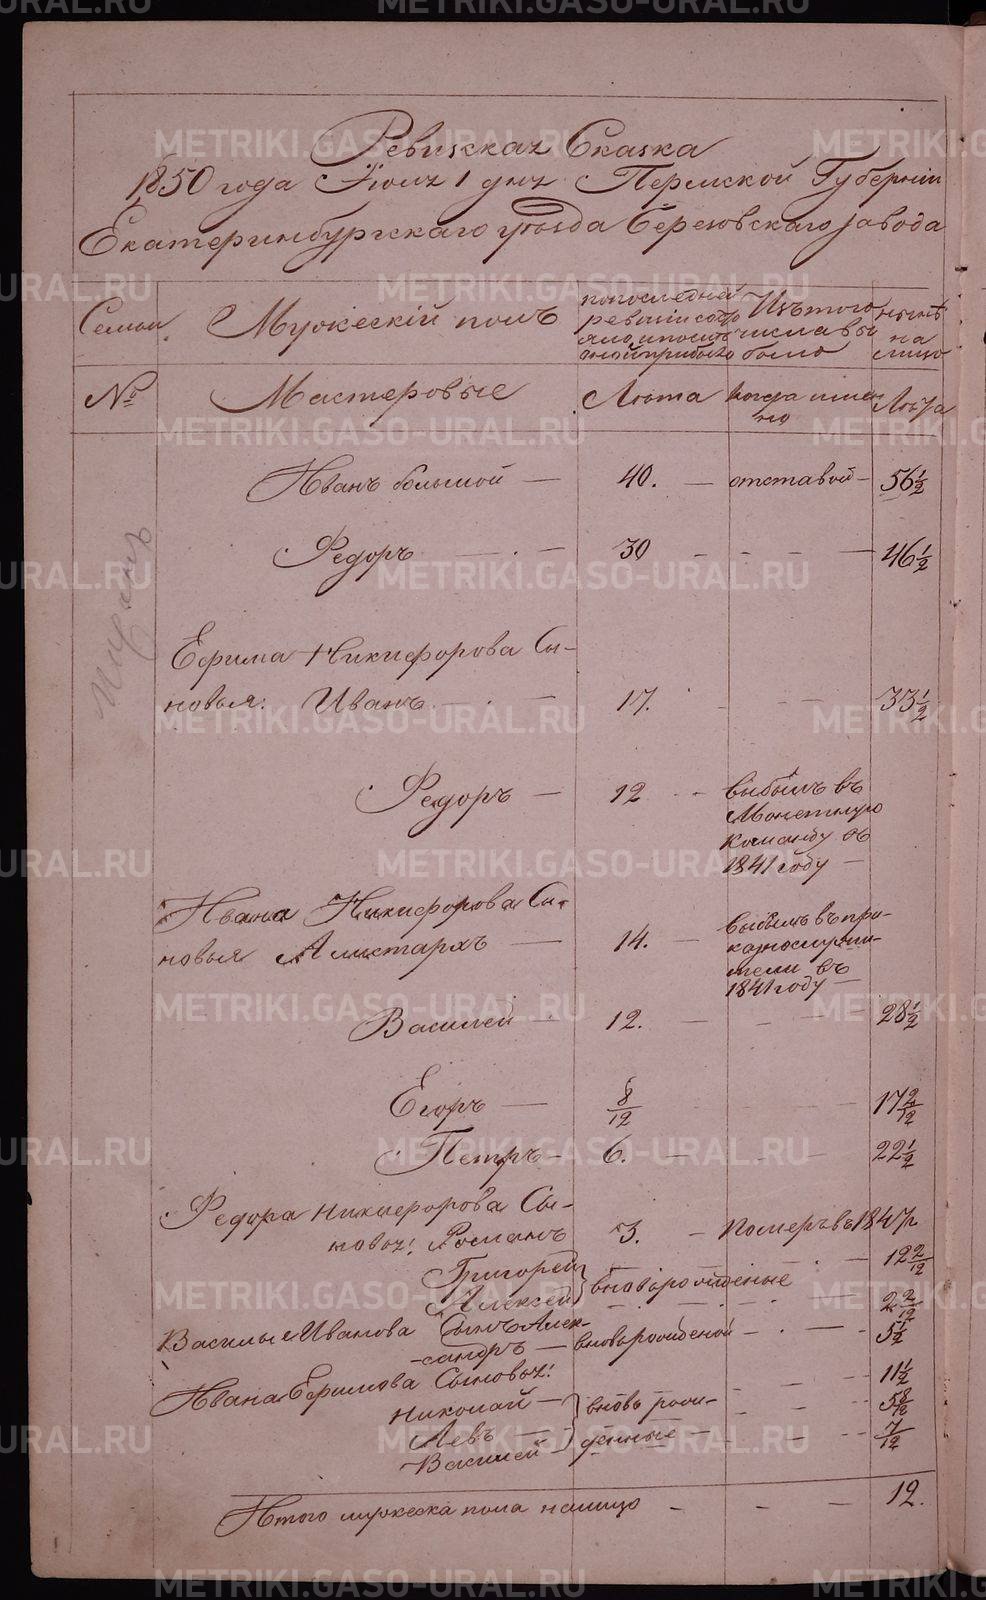 Ревизская Сказка
1850 года Июля 1 дня Пермской Губернии
Екатеринбургскаго уезда Березовскаго завода
Семьи Мужескій полъ по последней ревизіи состояло и после оной прибыло Изъ того числа выбыло ныне на лицо
№ Мастеровые Лѣта когда именно Лѣта
Иванъ большой — 40. — отставной — 56 1/2
Федоръ — 30 — — — 46 1/2
Мещане
Ефима Никифорова Сы-
новья: Иванъ — 17. — — 33 1/2
Федоръ — 12 — выбылъ въ
Монетную
команду въ
1841 году —
Ивана Никифорова Сы-
новья Алистархъ — 14. — выбылъ въ при-
казнослужи-
тели въ
1841 году —
Василей — 12. — — — 28 1/2
Егоръ — 8/12 — — 17 2/12
Петръ — 6. — — — 22 1/2
Федора Никифорова Сы-
новья: Романъ 3. — Померъ въ 1847 г
Григорей } вновьрожденные — 12 2/12
Алексей — — — 2 2/12
Василья Иванова Сынъ Алек-
сандръ — вновьрожденой — — 5 1/2
Ивана Ефимова Сыновья:
Николай — } вновь рож- — — 11 1/2
Левъ — денные — — — 5 8/12
Василей — — — 7/12
Итого мужеска пола налицо — — — 12.
METRIKI.GASO-URAL.RU